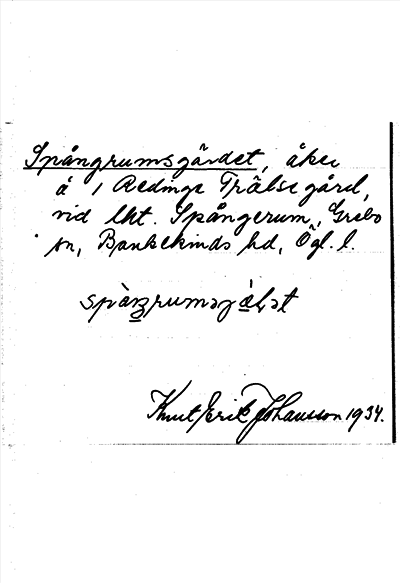 Spångrumsgärdet, åker
å 1 Redinge Trälsegård,
vid lht. Spångerum, Grebo
sn, Bankekinds hd, Ögl. l.
Knut Erik Johansson 1934.